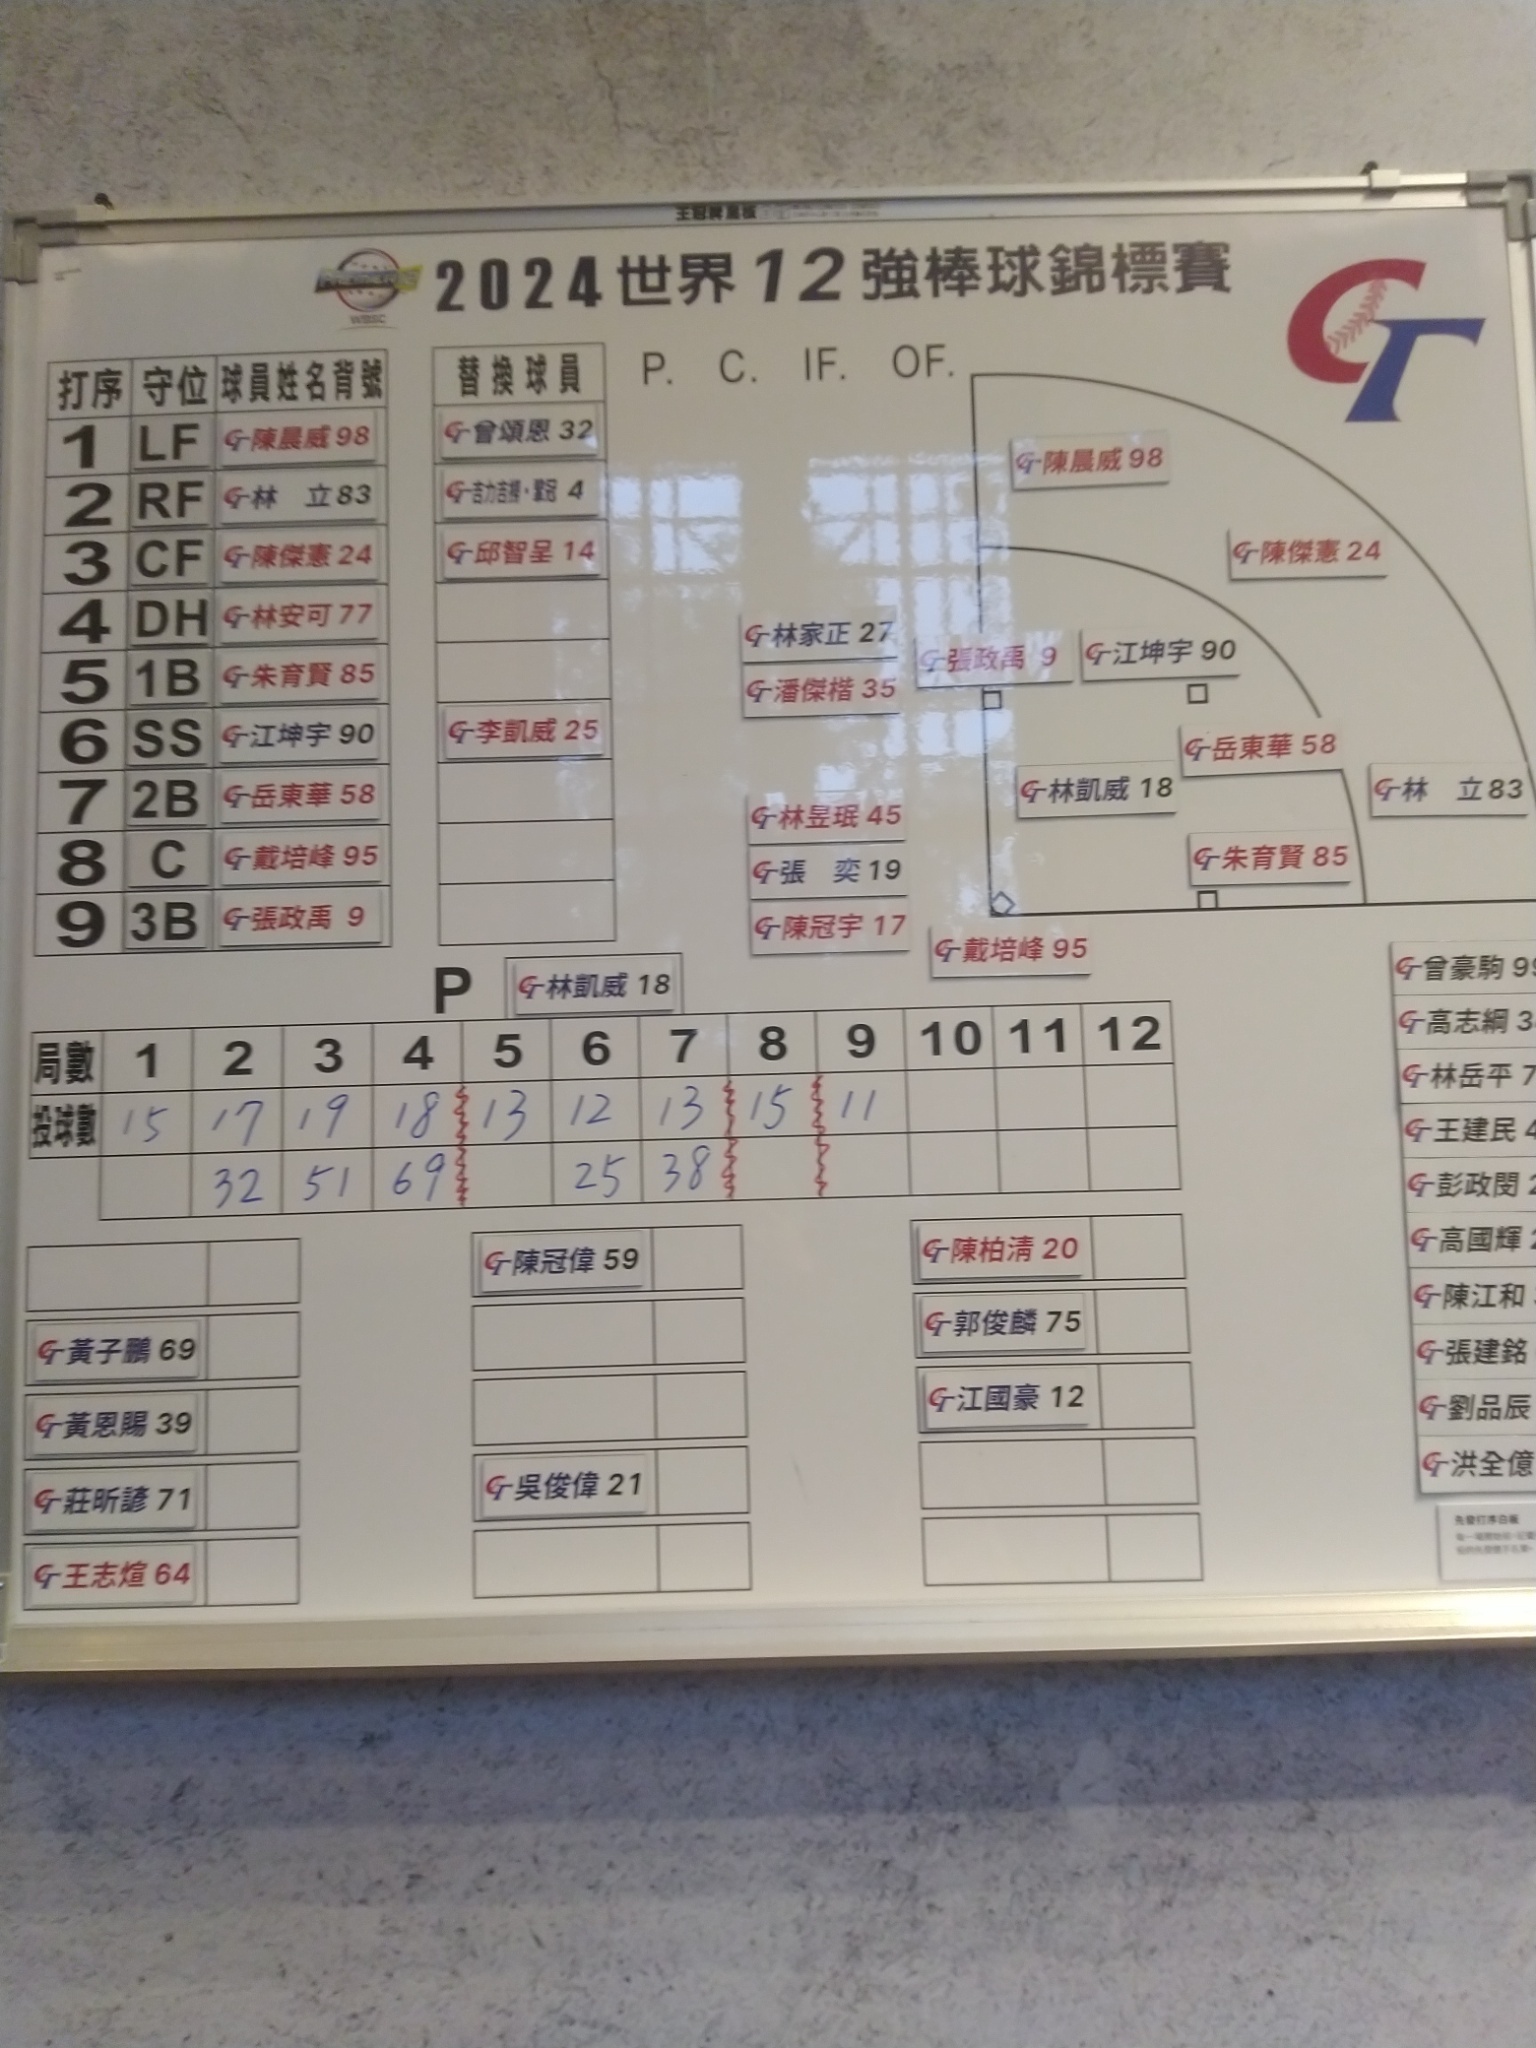 王冠牌黑板
WBSC
2024世界12強棒球錦標賽
CT
打序 守位 球員姓名背號 替換球員 P. C. IF. OF.
1 LF 陳晨威 98 曾頌恩 32
2 RF 林 立 83 吉力吉撈・鞏冠 4
3 CF 陳傑憲 24 邱智呈 14
4 DH 林安可 77
5 1B 朱育賢 85
6 SS 江坤宇 90 李凱威 25
7 2B 岳東華 58
8 C 戴培峰 95
9 3B 張政禹 9
陳晨威 98
陳傑憲 24
林家正 27 張政禹 9 江坤宇 90
潘傑楷 35
岳東華 58
林凱威 18 林 立 83
林昱珉 45
張 奕 19 朱育賢 85
陳冠宇 17 戴培峰 95
P 林凱威 18
局數 1 2 3 4 5 6 7 8 9 10 11 12
投球數 15 17 19 18 13 12 13 15 11
32 51 69 25 38
陳冠偉 59 陳柏清 20
黃子鵬 69 郭俊麟 75
黃恩賜 39 江國豪 12
莊昕諺 71 吳俊偉 21
王志煊 64
曾豪駒 99
高志綱 3
林岳平 7
王建民 4
彭政閔 2
高國輝 2
陳江和
張建銘
劉品辰
洪全億
先發打序白板